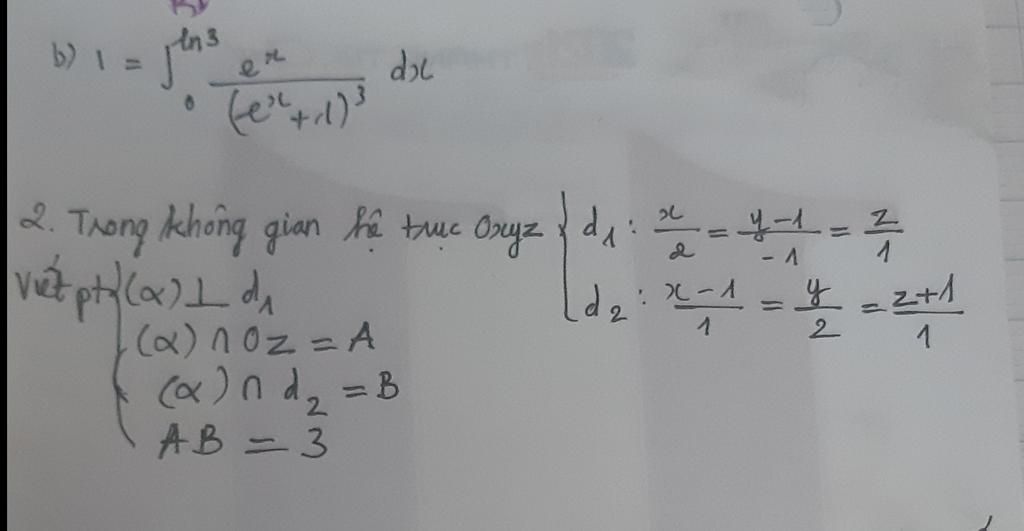 b) I = ∫₀^{ln3} e^x / (e^x + 1)^3 dx
2. Trong không gian hệ trục Oxyz { d₁ : x/2 = (y-1)/-1 = z/1
d₂ : (x-1)/1 = y/2 = (z+1)/1
Viết pt { (α) ⊥ d₁
(α) ∩ Oz = A
(α) ∩ d₂ = B
AB = 3